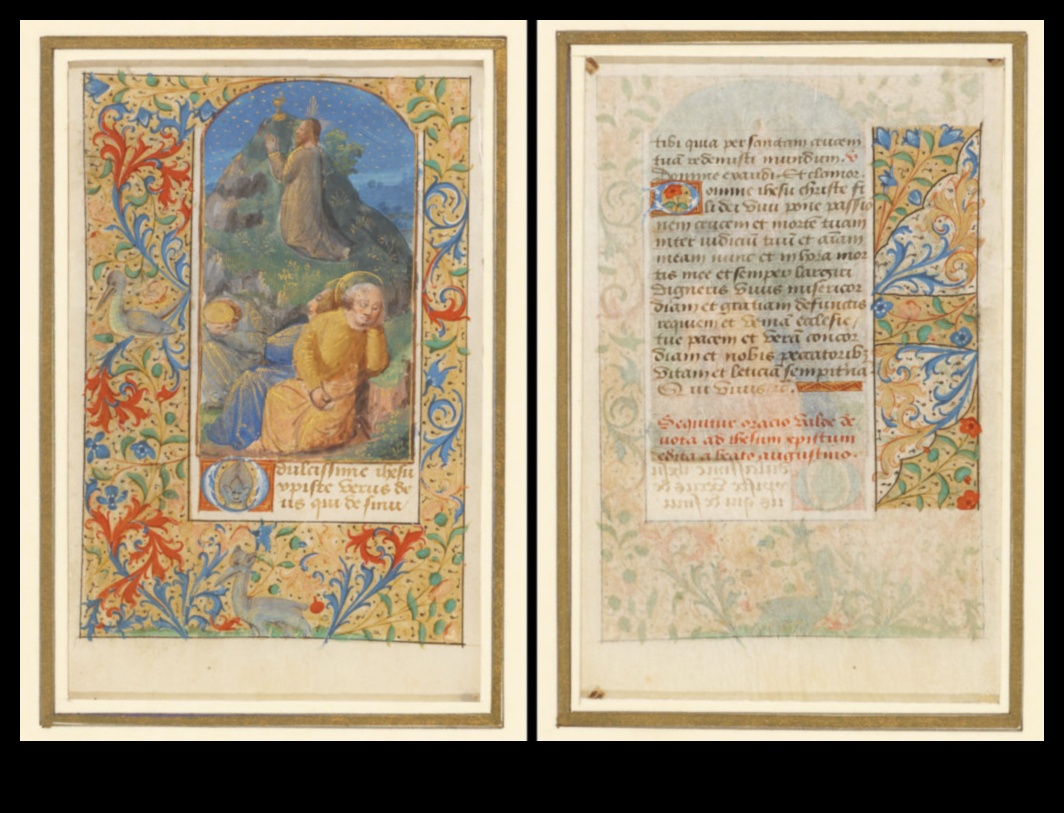 dulcissime ihesu
xpiste verus de
us qui de sinu
tibi quia per sanctam crucem
tuā redemisti mundum. v
Domine exaudi. Et clamor.
Domine ihesu christe fi
li dei vivi pone passio
nem crucem et mortē tuam
inter iudiciū tuū et aīam
meam nunc et in hora mor
tis mee et semper largiri
digneris vivis misericor
diam et grātiam defunctis
requiem et veniā ecclesie
tue pacem et verā concor
diam et nobis peccatoribz
vitam et leticiā sempitnā
Qui vivis
Sequitur oracio valde de
vota ad ihesum xpistum
edita a beato augustino.